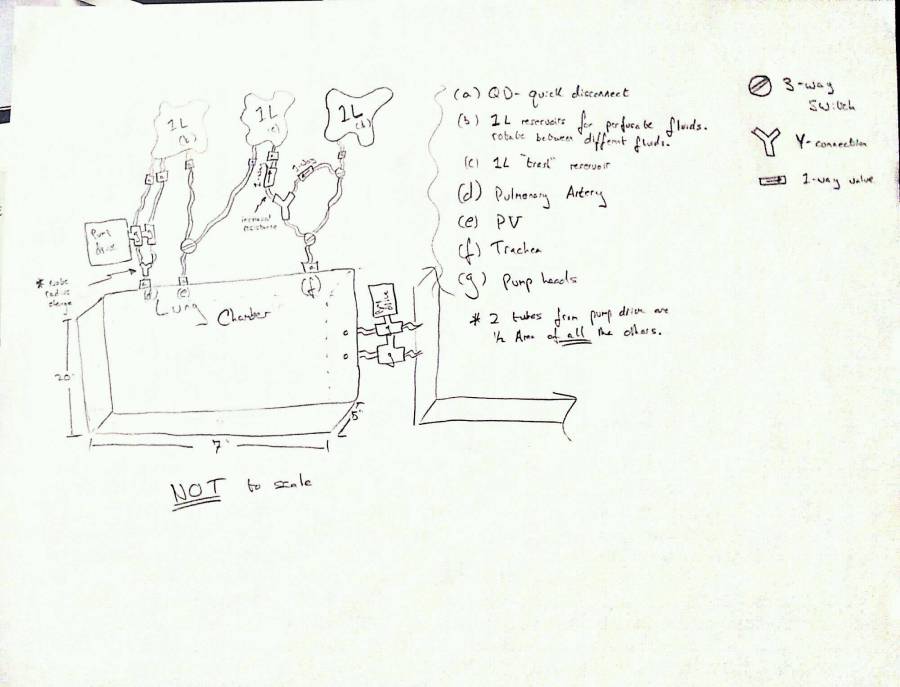 1L
(b)
1L
(c)
1L
(b)
1-way
1-way
increased
resistance
Pump
drive
* tube
radius
change
a
d
e
a
(f)
Lung
Chamber
Pump
drive
g
g
20"
7"
5"
NOT to scale
(a) QD- quick disconnect
(b) 1L reservoirs for perfusate fluids.
rotate between different fluids.
(c) 1L reservoir
(d) Pulmonary Artery
(e) PV
(f) Trachea
(g) Pump heads
* 2 tubes from pump drive are
1/2 Area of all the others.
3-way
Switch
Y-connection
1-way valve